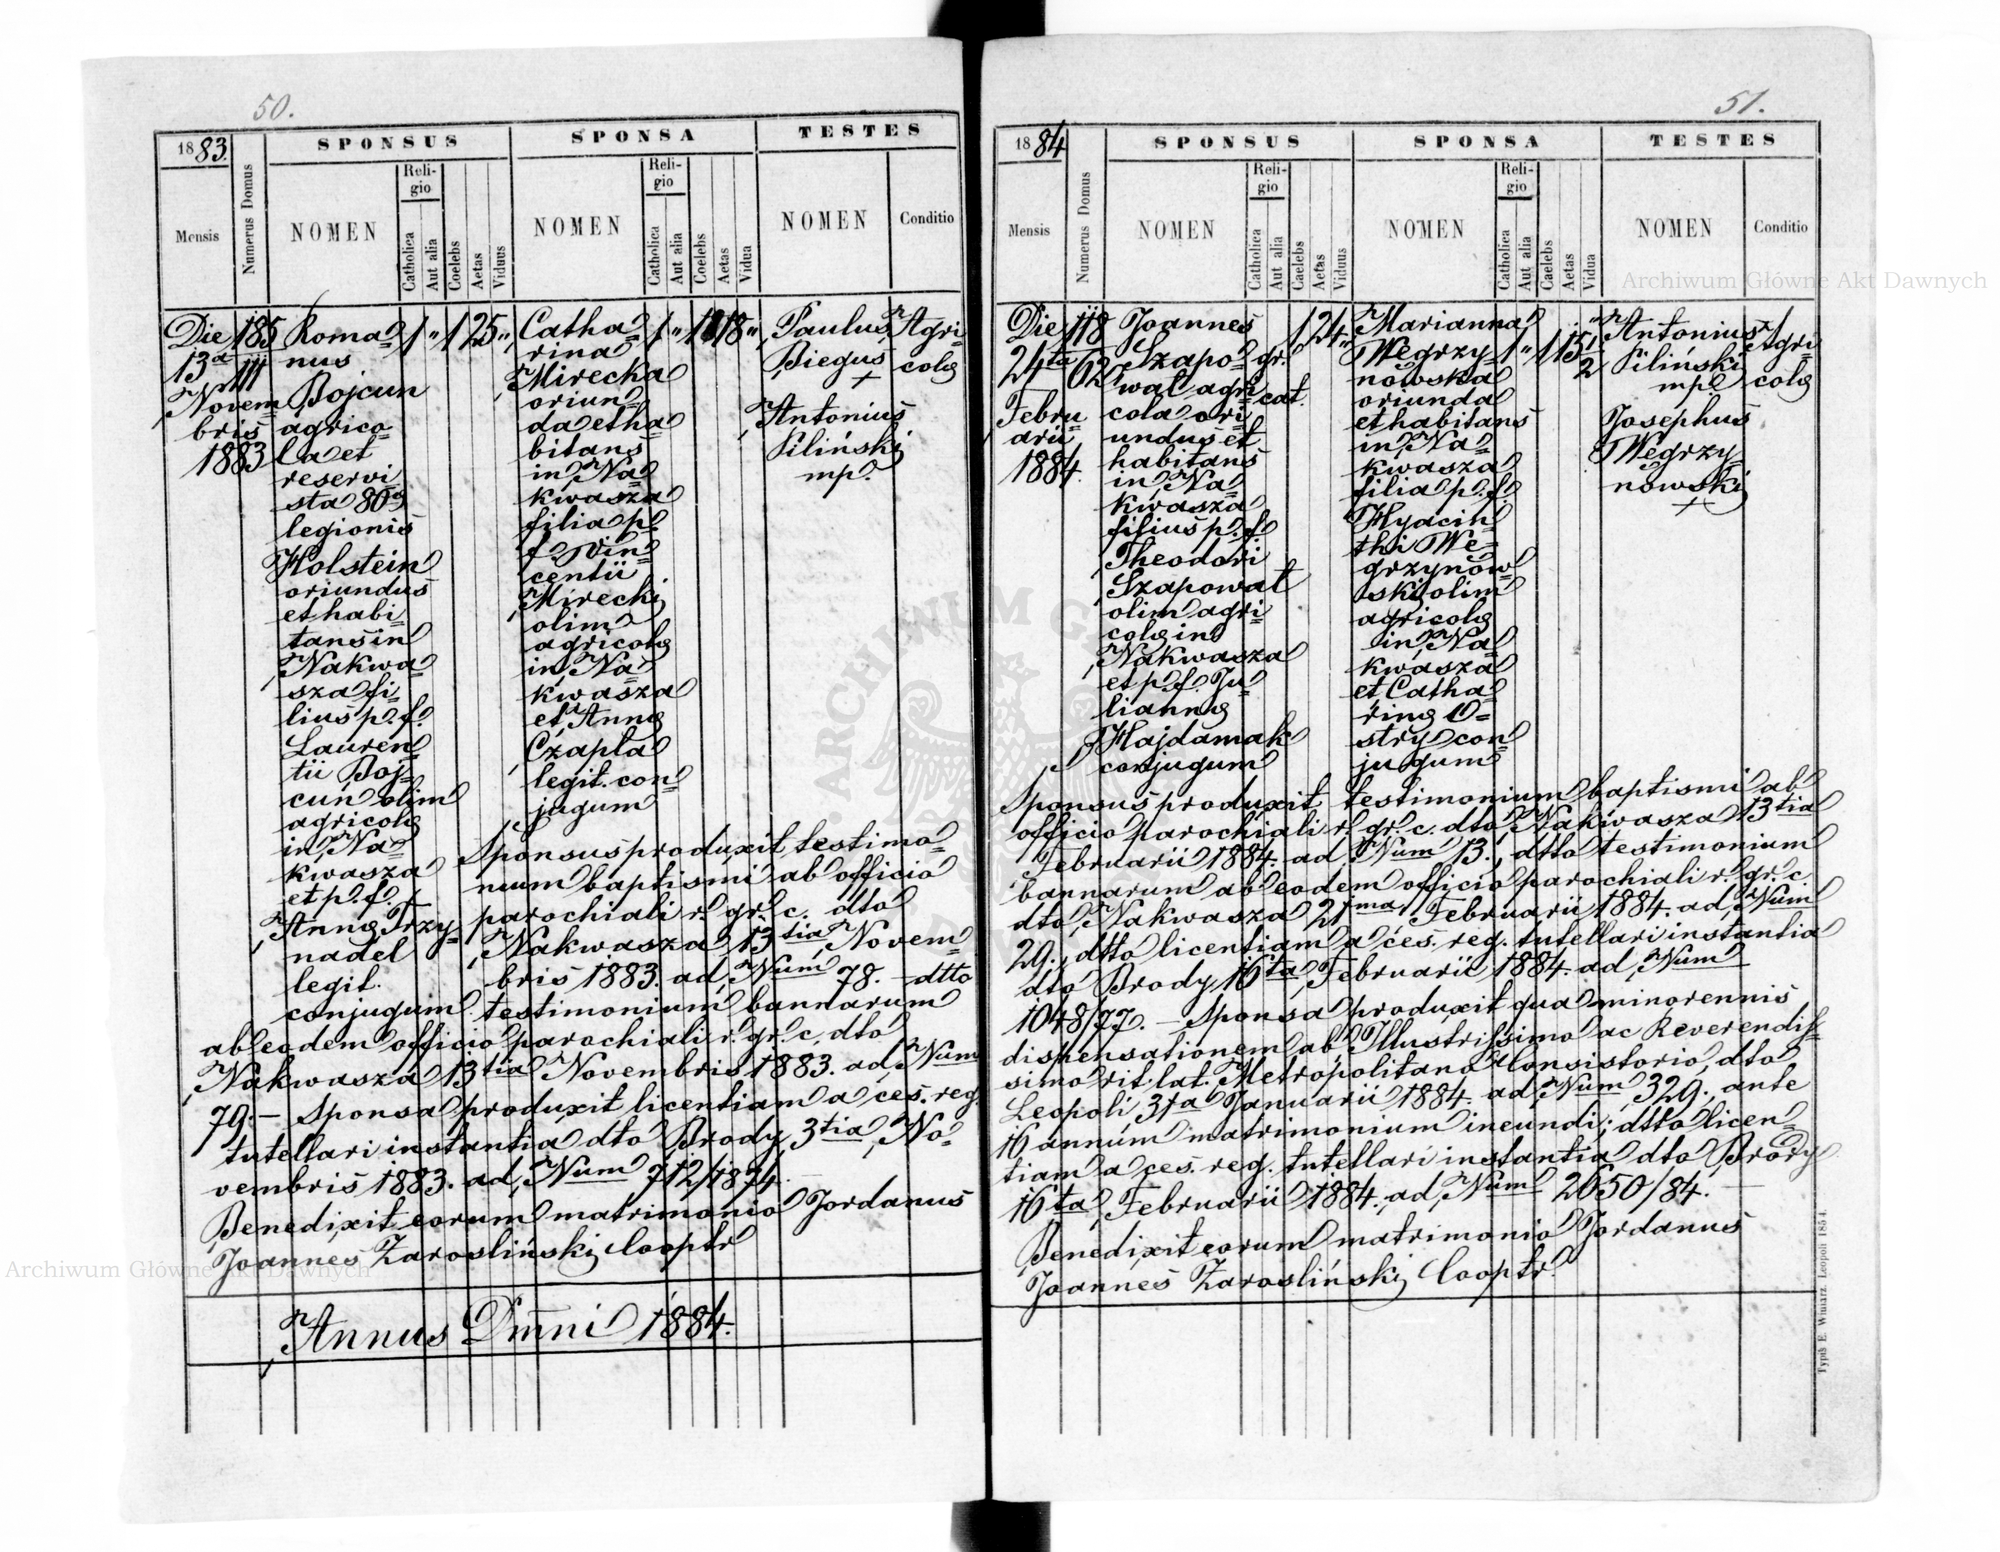 50.
1883.
SPONSUS
SPONSA
TESTES
Mensis
Numerus Domus
NOMEN
Religio
Catholica
Aut alia
Coelebs
Aetas
Viduus
NOMEN
Religio
Catholica
Aut alia
Coelebs
Aetas
Vidua
NOMEN
Conditio
Die
13a
Novem
bris
1883
185
111
Roma=
nus
Bojcun
agrico=
la et
reservi
sta 80
legionis
Holstein
oriundus
et habi
tans in
Nakwa=
sza fi=
lius p. f.
Lauren
tii Boj=
cun olim
agricola
in Na=
kwasza
et p. f.
Anna Trzy=
nadel
legit.
conjugum
1 " 1 25 "
Catha=
rina
Mirecka
oriun=
da et ha=
bitans
in Na=
kwasza
filia p.
f. Vin=
centii
Mirecki
olim
agricola
in Na=
kwasza
et Anna
Czapla
legit. con=
jugum
1 " 1 18 "
Paulus
Biegus
+
Antonius
Piliński
mp.
Agri
cola
Sponsus produxit testimo=
nium baptismi ab officio
parochiali r. gr. c. dto
Nakwasza 13tia Novem
bris 1883. ad Num 78. - dtto
testimonium bannarum
ab eodem officio parochiali r. gr. c. dto
Nakwasza 13tia Novembris 1883. ad Num
79. - Sponsa produxit licentiam a ces. reg.
tutellari instantia dto Brody 3tia No=
vembris 1883. ad Num 712/1874.
Benedixit eorum matrimonio Jordanus
Joannes Zarosliński Cooptr
Annus Dmni 1884.
51.
1884
SPONSUS
SPONSA
TESTES
Mensis
Numerus Domus
NOMEN
Religio
Catholica
Aut alia
Caelebs
Aetas
Viduus
NOMEN
Religio
Catholica
Aut alia
Caelebs
Aetas
Vidua
NOMEN
Conditio
Die
24ta
Febru
arii
1884.
118
62
Joannes
Szapo=
wał agri
cola ori
undus et
habitans
in Na=
kwasza
filius p. f.
Theodori
Szapował
olim agri=
cola in
Nakwasza
et p. f. Ju=
lianna
Hajdamak
conjugum
gr.
cat.
1 24 "
Marianna
Węgrzy=
nowska
oriunda
et habitans
in Na=
kwasza
filia p. f.
Hyacin
thi Wę=
grzynow=
ski olim
agricola
in Na=
kwasza
et Catha
rina O=
stry con=
jugum
1 " 1 15 1/2 "
Antonius
Piliński
mp.
Josephus
Węgrzy
nowski
+
Agri
cola
Sponsus produxit testimonium baptismi ab
officio parochiali r. gr. c. dto Nakwasza 13tia
Februarii 1884. ad Num 13., dtto testimonium
bannarum ab eodem officio parochiali r. gr. c.
dto Nakwasza 21ma Februarii 1884. ad Num
29., dtto licentiam a ces. reg. tutellari instantia
dto Brody 16ta Februarii 1884. ad Num
1048/77. - Sponsa produxit qua minorennis
dispensationem ab Illustrissimo ac Reverendis=
simo rit. lat. Metropolitano Consistorio, dto
Leopoli 31a Januarii 1884. ad Num 329., ante
16 annum matrimonium ineundi; dtto licen=
tiam a ces. reg. tutellari instantia dto Brody
16ta Februarii 1884. ad Num 2650/84. -
Benedixit eorum matrimonio Jordanus
Joannes Zarosliński Cooptr.
Typis E. Winiarz Leopoli 1854.
Archiwum Główne Akt Dawnych
Archiwum Główne Akt Dawnych